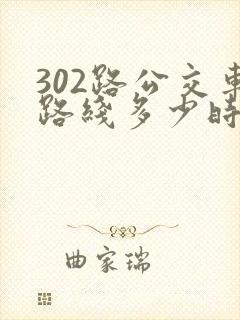 302路公交車
路綫多少時
曲家瑞